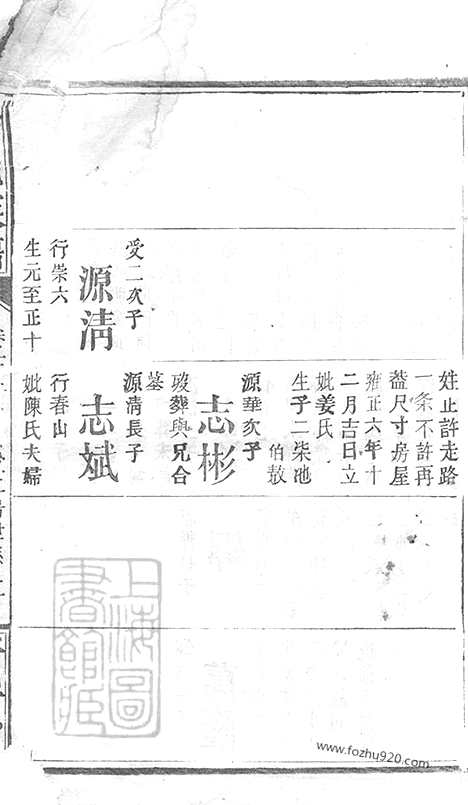 姓止許走路
一条不許再
葢尺寸房屋
雍正六年十
二月吉日立
妣姜氏
生子二柒池
伯敖
源華次子
志彬
歿葬與兄合
墓
受二次子
源清
行崇六
生元至正十
源清長子
志斌
行春山
妣陳氏夫婦
上海圖
書館藏
www.fozhu920.com